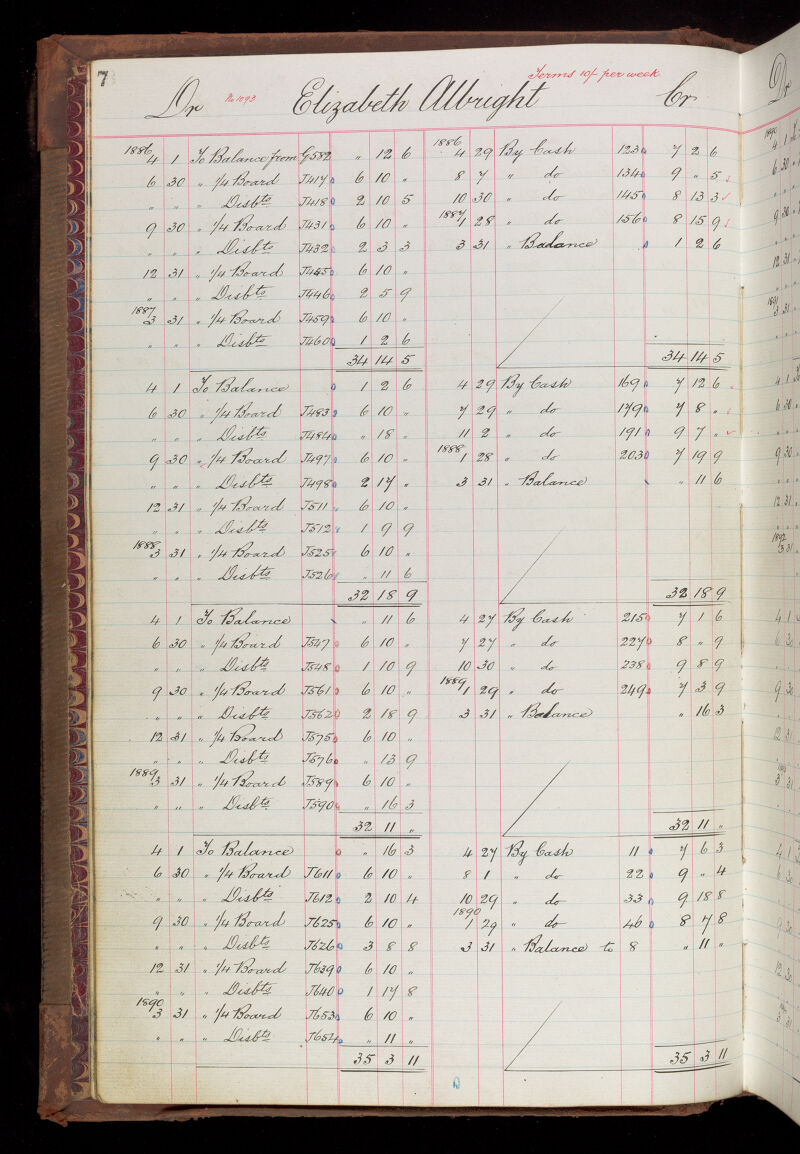 7
Terms 10/- per week
Dr No 1093 Elizabeth Albright Cr
1886 4 1 To Balance from G582 " 12 6 1886 4 29 By Cash 123 7 2 6
6 30 " 1/4 Board J417 6 10 " 8 7 " do 134 9 " 5
" " " Disbts J418 2 10 5 10 30 " do 145 8 13 3
9 30 " 1/4 Board J431 6 10 " 1887 1 28 " do 156 8 15 9
" " " Disbts J432 2 3 3 3 31 " Balance 1 2 6
12 31 " 1/4 Board J445 6 10 "
" " " Disbts J446 2 5 9
1887 3 31 " 1/4 Board J459 6 10 "
" " " Disbts J460 1 2 6
34 14 5 34 14 5
4 1 To Balance 1 2 6 4 29 By Cash 169 7 12 6
6 30 " 1/4 Board J483 6 10 " 7 29 " do 179 7 8 "
" " " Disbts J484 " 18 " 11 2 " do 191 9 7 "
9 30 " 1/4 Board J497 6 10 " 1888 1 28 " do 203 7 19 9
" " " Disbts J498 2 17 " 3 31 " Balance " 11 6
12 31 " 1/4 Board J511 6 10 "
" " " Disbts J512 1 9 9
1888 3 31 " 1/4 Board J525 6 10 "
" " " Disbts J526 " 11 6
32 18 9 32 18 9
4 1 To Balance " 11 6 4 27 By Cash 215 7 1 6
6 30 " 1/4 Board J547 6 10 " 7 27 " do 227 8 " 9
" " " Disbts J548 1 10 9 10 30 " do 238 9 8 9
9 30 " 1/4 Board J561 6 10 " 1889 1 29 " do 249 7 3 9
" " " Disbts J562 2 18 9 3 31 " Balance " 16 3
12 31 " 1/4 Board J575 6 10 "
" " " Disbts J576 " 13 9
1889 3 31 " 1/4 Board J589 6 10 "
" " " Disbts J590 " 16 3
32 11 " 32 11 "
4 1 To Balance " 16 3 4 27 By Cash 11 7 6 3
6 30 " 1/4 Board J611 6 10 " 8 1 " do 22 9 " 4
" " " Disbts J612 2 10 4 10 29 " do 33 9 18 8
9 30 " 1/4 Board J625 6 10 " 1890 1 29 " do 46 8 7 8
" " " Disbts J626 3 8 8 3 31 " Balance to 8 " 11 "
12 31 " 1/4 Board J639 6 10 "
" " " Disbts J640 1 17 8
1890 3 31 " 1/4 Board J653 6 10 "
" " " Disbts J654 " 11 "
35 3 11 35 3 11